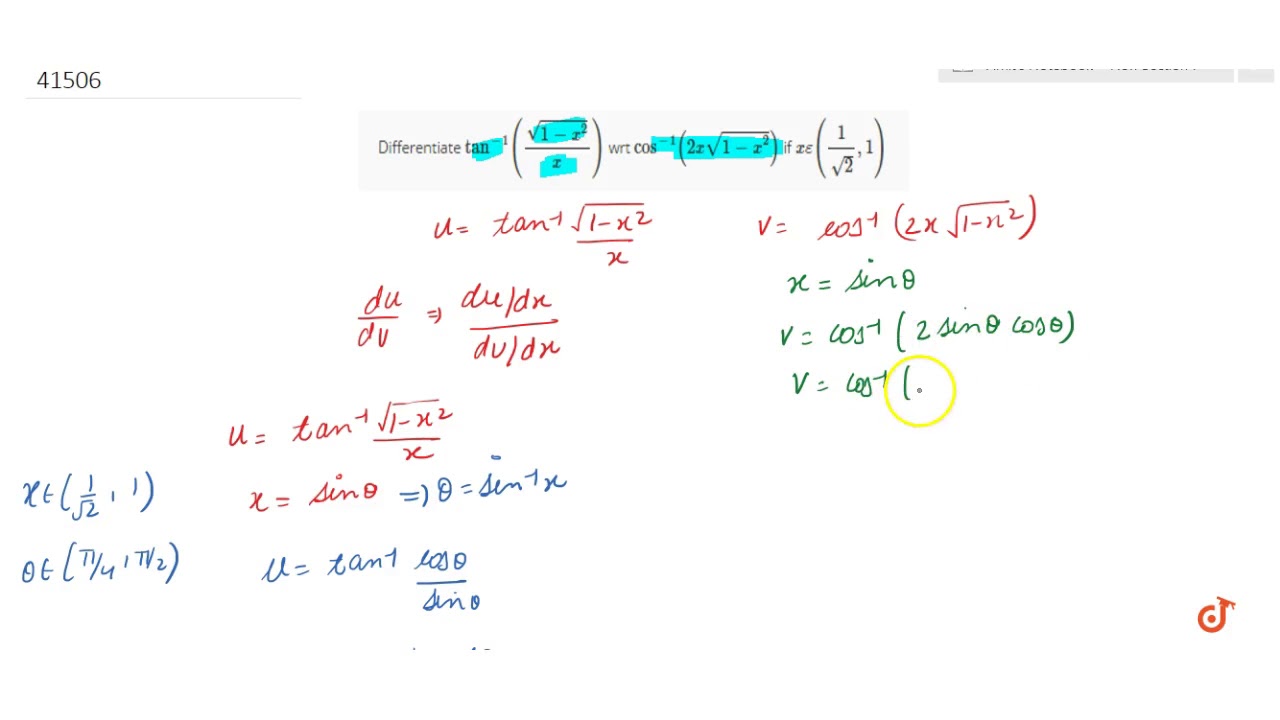 41506
Differentiate tan⁻¹(√(1−x²)/x) wrt cos⁻¹(2x√(1−x²)) if xε(1/√2, 1)
u = tan⁻¹ √(1−x²)/x
v = cos⁻¹ (2x √(1−x²))
x = sinθ
du/dv ⇒ (du/dx)/(dv/dx)
v = cos⁻¹ (2 sinθ cosθ)
v = cos⁻¹ (
u = tan⁻¹ √(1−x²)/x
x∈(1/√2, 1)
x = sinθ ⇒ θ = sin⁻¹x
θ∈(π/4, π/2)
u = tan⁻¹ cosθ/sinθ